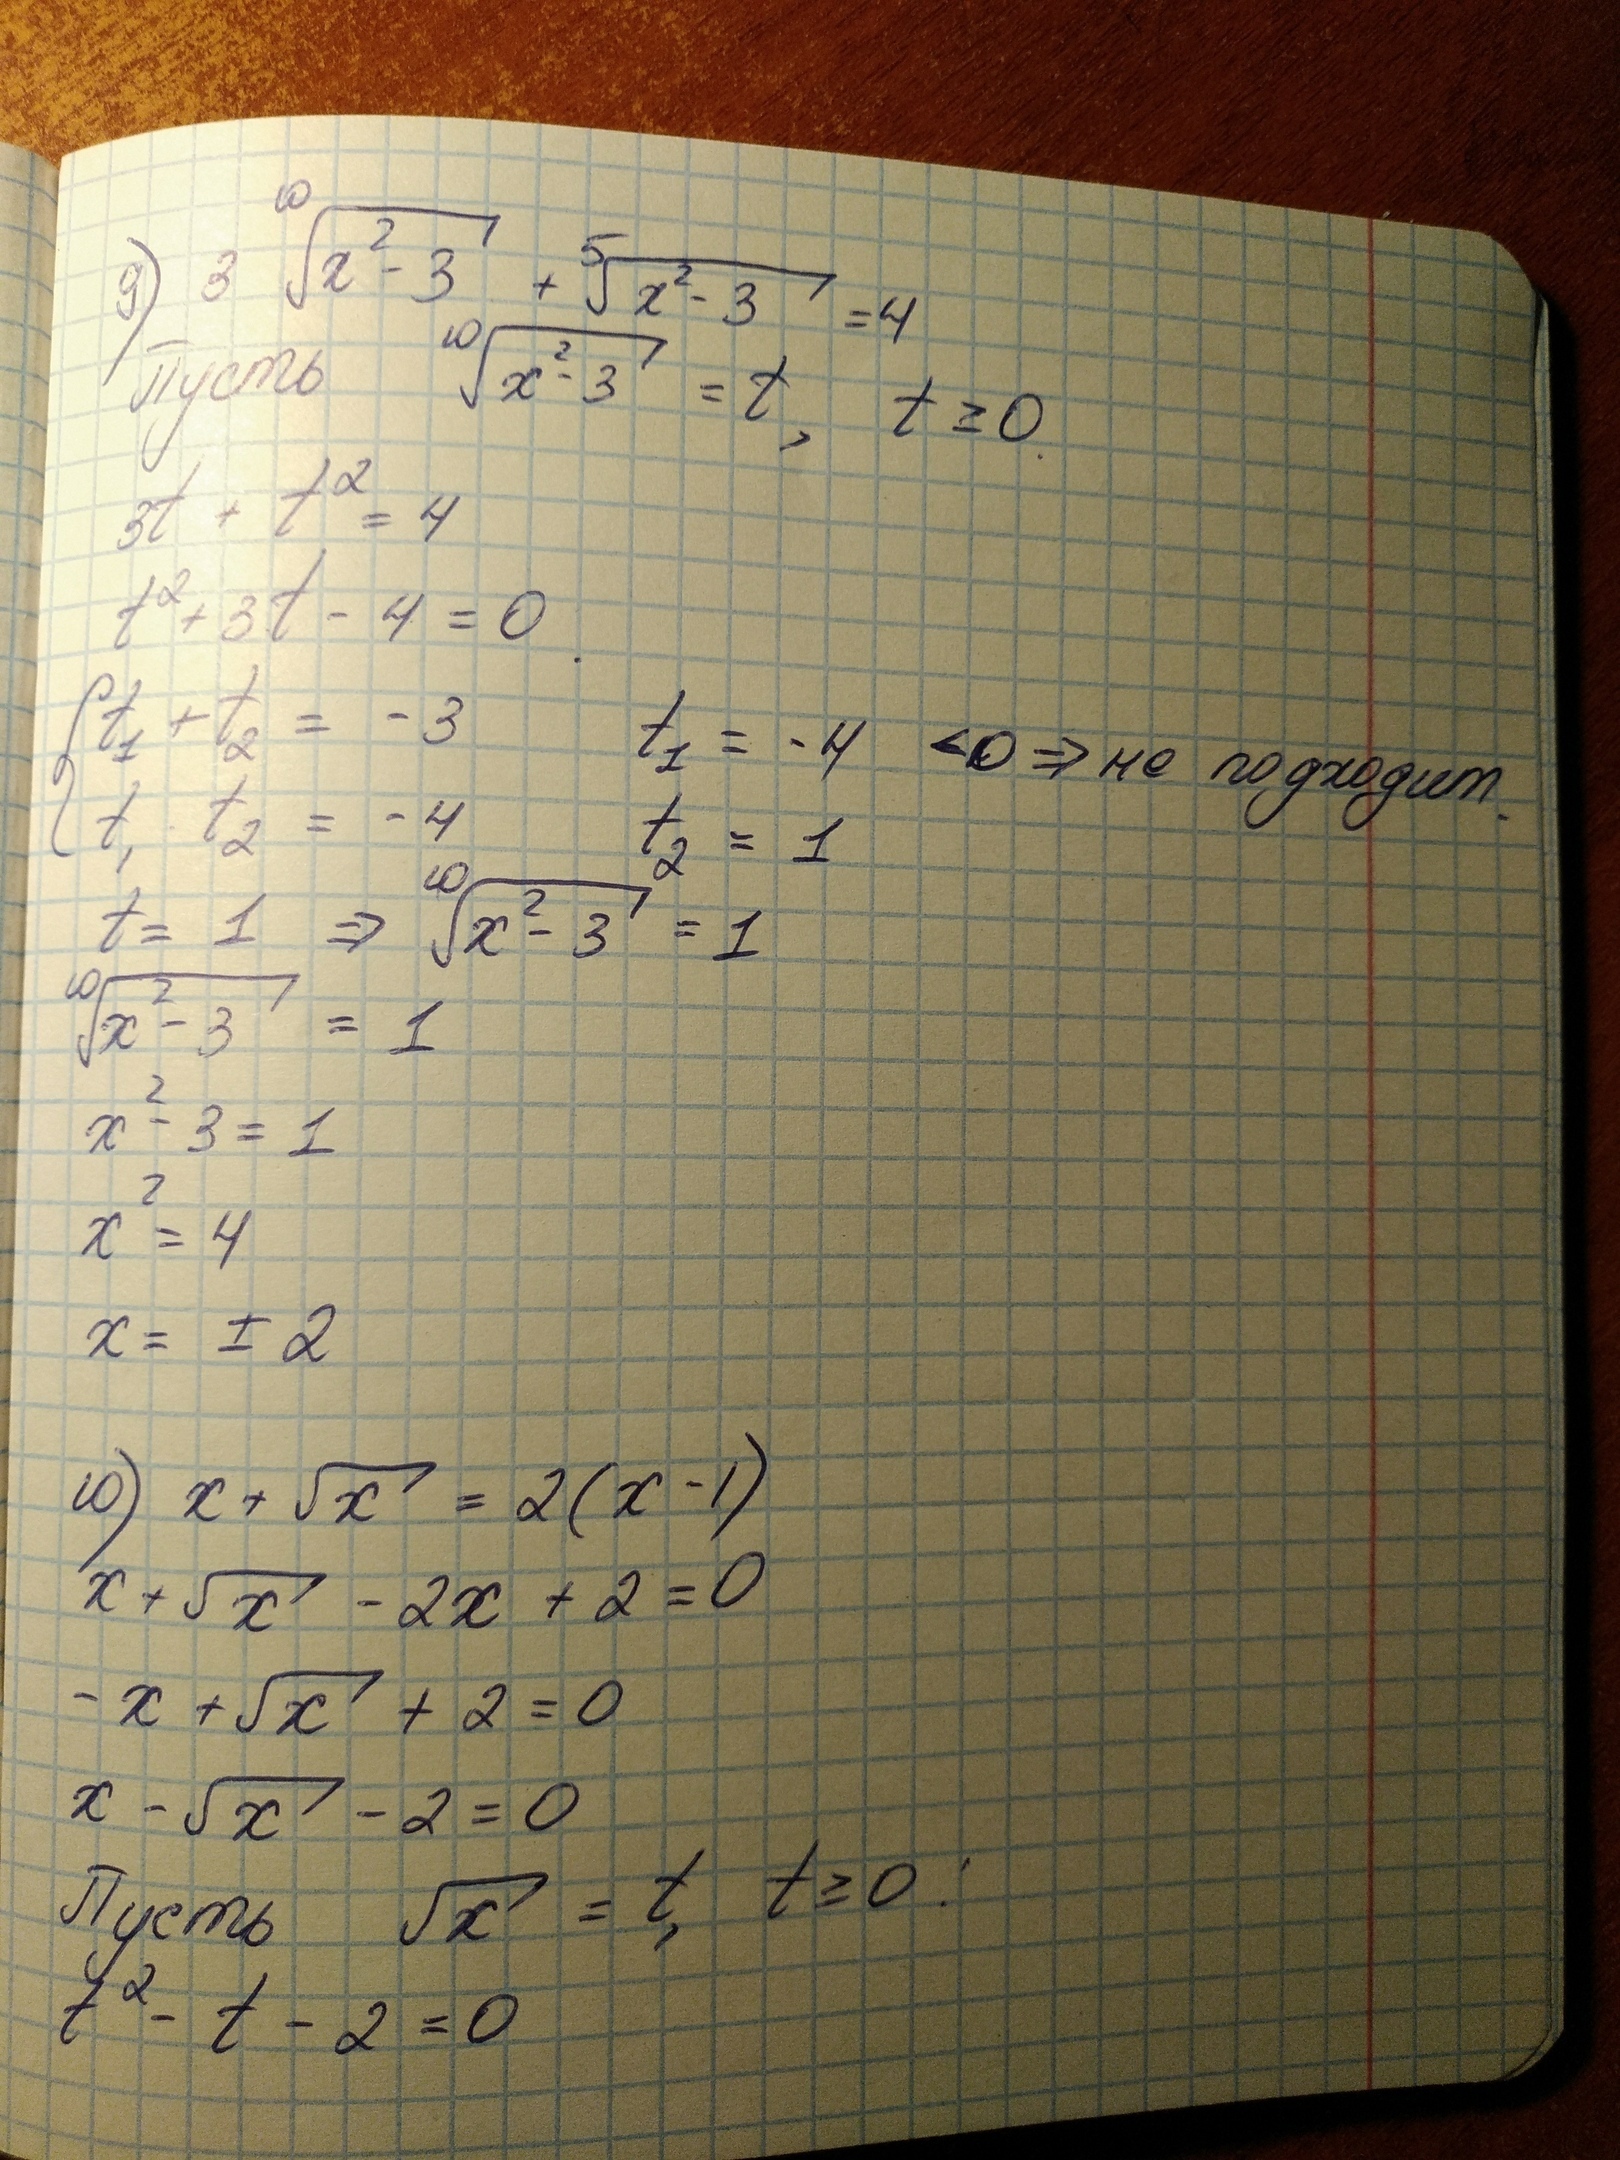 9) 3 ¹⁰√(x² - 3) + ⁵√(x² - 3) = 4
Пусть ¹⁰√(x² - 3) = t, t ≥ 0.
3t + t² = 4
t² + 3t - 4 = 0
t₁ + t₂ = -3 t₁ = -4 < 0 ⇒ не подходит.
t₁ · t₂ = -4 t₂ = 1
t = 1 ⇒ ¹⁰√(x² - 3) = 1
¹⁰√(x² - 3) = 1
x² - 3 = 1
x² = 4
x = ± 2
10) x + √x = 2(x - 1)
x + √x - 2x + 2 = 0
-x + √x + 2 = 0
x - √x - 2 = 0
Пусть √x = t, t ≥ 0.
t² - t - 2 = 0